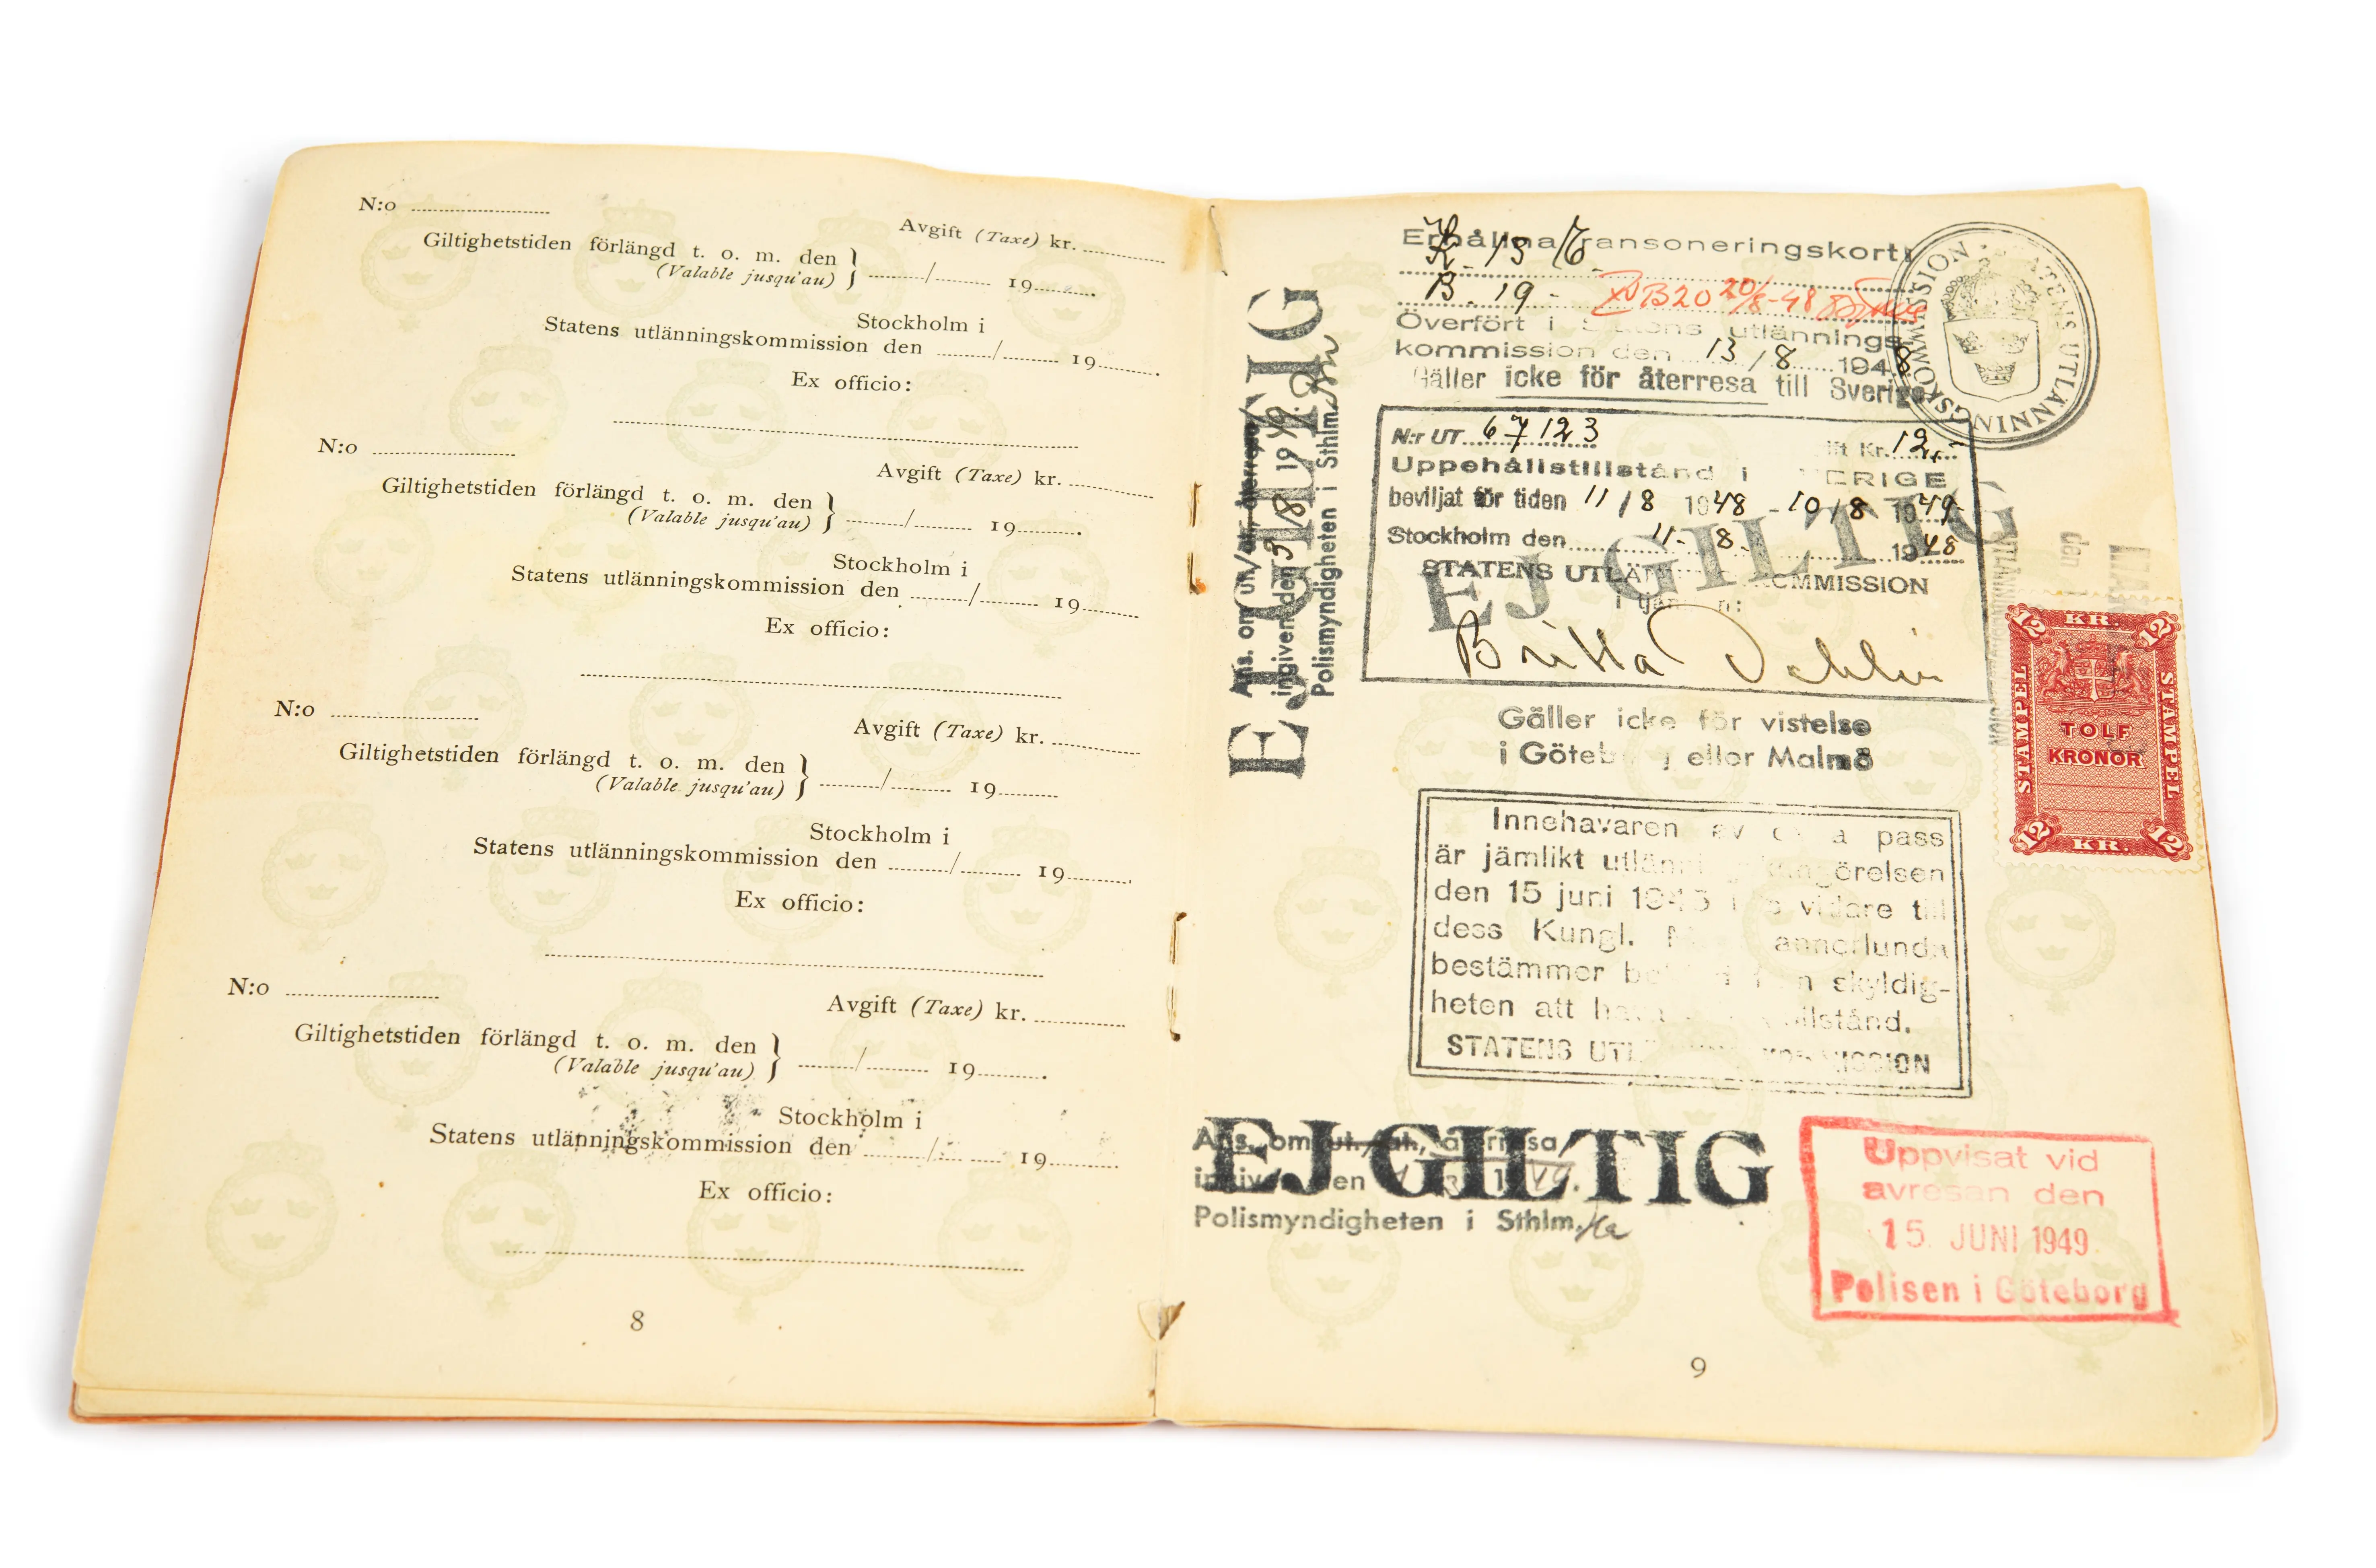 N:o
Avgift (Taxe) kr.
Giltighetstiden förlängd t. o. m. den
(Valable jusqu'au)
/ 19
Stockholm i
Statens utlänningskommission den / 19
Ex officio:
N:o
Avgift (Taxe) kr.
Giltighetstiden förlängd t. o. m. den
(Valable jusqu'au)
/ 19
Stockholm i
Statens utlänningskommission den / 19
Ex officio:
N:o
Avgift (Taxe) kr.
Giltighetstiden förlängd t. o. m. den
(Valable jusqu'au)
/ 19
Stockholm i
Statens utlänningskommission den / 19
Ex officio:
N:o
Avgift (Taxe) kr.
Giltighetstiden förlängd t. o. m. den
(Valable jusqu'au)
/ 19
Stockholm i
Statens utlänningskommission den / 19
Ex officio:
8
Erhållna ransoneringskort:
B. 19 - B20 20/8-48
Överfört i Statens utlännings-
kommission den 13 / 8 1948
Gäller icke för återresa till Sverige
STATENS UTLÄNNINGSKOMMISSION
N:r UT 67123
Kr. 12,-
Uppehållstillstånd i SVERIGE
beviljat för tiden 11 / 8 1948 - 10 / 8 1949
Stockholm den 11 - 8 - 1948
STATENS UTLÄNNINGSKOMMISSION
I tjänsten:
Britta
EJ GILTIG
EJ GILTIG
Ans. om ut/ återresa
ingiven den 19
Polismyndigheten i Sthlm
Gäller icke för vistelse
i Göteborg eller Malmö
12 KR. 12
STÄMPEL
TOLF
KRONOR
STÄMPEL
12 KR. 12
den
Innehavaren av pass
är jämlikt
den 15 juni tills vidare till
dess Kungl. annorlunda
bestämmer skyldig-
heten att tillstånd.
STATENS UTLÄNNINGSKOMMISSION
EJ GILTIG
Ans. om återresa
ingiven den
Polismyndigheten i Sthlm.
Uppvisat vid
avresan den
15. JUNI 1949
Polisen i Göteborg
9